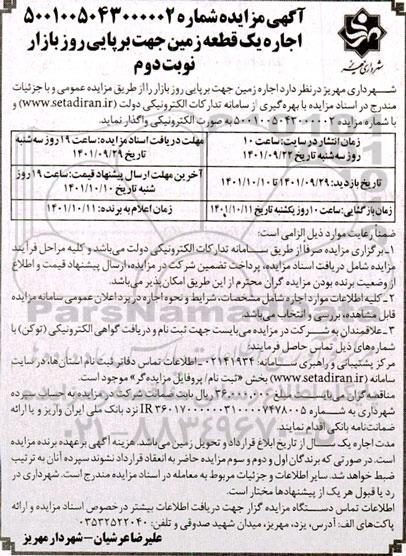 آگهی مزایده شماره ۵۰۰۱۰۰۵۰۴۳۰۰۰۰۰۲
اجاره یک قطعه زمین جهت برپایی روز بازار
نوبت دوم
شهرداری مهریز
شهرداری مهریز در نظر دارد اجاره زمین جهت برپایی روز بازار را از طریق مزایده عمومی و با جزئیات
مندرج در اسناد مزایده با بهره‌گیری از سامانه تدارکات الکترونیکی دولت (www.setadiran.ir) و
با شماره مزایده ۵۰۰۱۰۰۵۰۴۳۰۰۰۰۰۲ به صورت الکترونیکی واگذار نماید.
زمان انتشار در سایت: ساعت ۱۰
روز سه شنبه تاریخ ۱۴۰۱/۰۹/۲۲
مهلت دریافت اسناد مزایده: ساعت ۱۹ روز سه شنبه
تاریخ ۱۴۰۱/۰۹/۲۹
تاریخ بازدید: ۱۴۰۱/۰۹/۲۹ تا ۱۴۰۱/۱۰/۱۰
آخرین مهلت ارسال پیشنهاد قیمت: ساعت ۱۹ روز
شنبه تاریخ ۱۴۰۱/۱۰/۱۰
زمان بازگشایی: ساعت ۱۰ روز یکشنبه تاریخ ۱۴۰۱/۱۰/۱۱
زمان اعلام به برنده: ۱۴۰۱/۱۰/۱۱
ضمنا رعایت موارد ذیل الزامی است:
۱- برگزاری مزایده صرفا از طریق سامانه تدارکات الکترونیکی دولت می‌باشد و کلیه مراحل فرآیند
مزایده شامل دریافت اسناد مزایده، پرداخت تضمین شرکت در مزایده، ارسال پیشنهاد قیمت و اطلاع
از وضعیت برنده بودن مزایده گران محترم از این طریق امکان پذیر می‌باشد.
۲- کلیه اطلاعات موارد اجاره شامل مشخصات، شرایط و نحوه اجاره در برد اعلان عمومی سامانه مزایده
قابل مشاهده، بررسی و انتخاب می‌باشد.
۳- علاقمندان به شرکت در مزایده می‌بایست جهت ثبت نام و دریافت گواهی الکترونیکی (توکن) با
شماره‌های ذیل تماس حاصل فرمایند:
مرکز پشتیبانی و راهبری سامانه: ۰۲۱۴۱۹۳۴ - اطلاعات تماس دفاتر ثبت نام استان‌ها، در سایت
سامانه (www.setadiran.ir) بخش «ثبت نام/ پروفایل مزایده‌گر» موجود است.
مناقصه گران می‌بایست مبلغ ۳۶۰٫۰۰۰٫۰۰۰ ریال بابت ضمانت شرکت در مزایده به حساب سپرده
شهرداری به شماره IR ۳۶۰۱۷۰۰۰۰۰۰۳۱۰۰۰۷۴۷۸۰۰۵ نزد بانک ملی ایران واریز و یا ارائه
ضمانت‌نامه بانکی اقدام نمایند.
مدت اجاره یک سال از تاریخ ابلاغ قرارداد و تحویل زمین می‌باشد. هزینه آگهی بر عهده برنده مزایده
است. در صورتی که برندگان اول و دوم و سوم مزایده حاضر به انعقاد قرارداد نشوند سپرده آنان به ترتیب
ضبط خواهد شد. سایر اطلاعات و جزئیات مربوط به معامله در اسناد مزایده مندرج است. شهرداری در
رد یا قبول هر یک از پیشنهادها مختار است.
اطلاعات تماس دستگاه مزایده گزار جهت دریافت اطلاعات بیشتر در خصوص اسناد مزایده و ارائه
پاکت‌های الف: آدرس، یزد، مهریز، میدان شهید صدوقی و تلفن: ۰۳۵۳۲۵۲۲۰۴۰
علیرضا عرشیان - شهردار مهریز
ParsNamadData
۰۲۱-۸۸۳۴۹۶۷۰